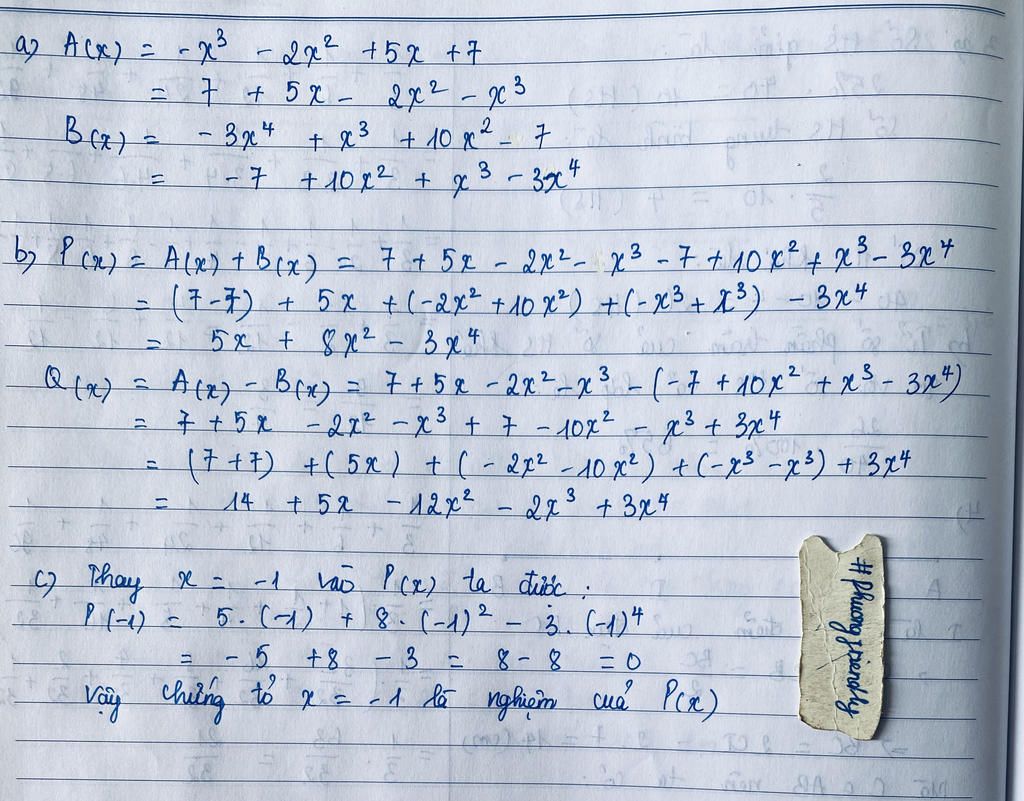 a) A(x) = -x³ - 2x² + 5x + 7
= 7 + 5x - 2x² - x³
B(x) = - 3x⁴ + x³ + 10x² - 7
= - 7 + 10x² + x³ - 3x⁴
b) P(x) = A(x) + B(x) = 7 + 5x - 2x² - x³ - 7 + 10x² + x³ - 3x⁴
= (7-7) + 5x + (-2x² + 10x²) + (-x³ + x³) - 3x⁴
= 5x + 8x² - 3x⁴
Q(x) = A(x) - B(x) = 7 + 5x - 2x² - x³ - (-7 + 10x² + x³ - 3x⁴)
= 7 + 5x - 2x² - x³ + 7 - 10x² - x³ + 3x⁴
= (7+7) + (5x) + (- 2x² - 10x²) + (-x³ - x³) + 3x⁴
= 14 + 5x - 12x² - 2x³ + 3x⁴
c) Thay x = -1 vào P(x) ta được :
P(-1) = 5 . (-1) + 8 . (-1)² - 3 . (-1)⁴
= - 5 + 8 - 3 = 8 - 8 = 0
Vậy chứng tỏ x = -1 là nghiệm của P(x)
#phuongfriendly